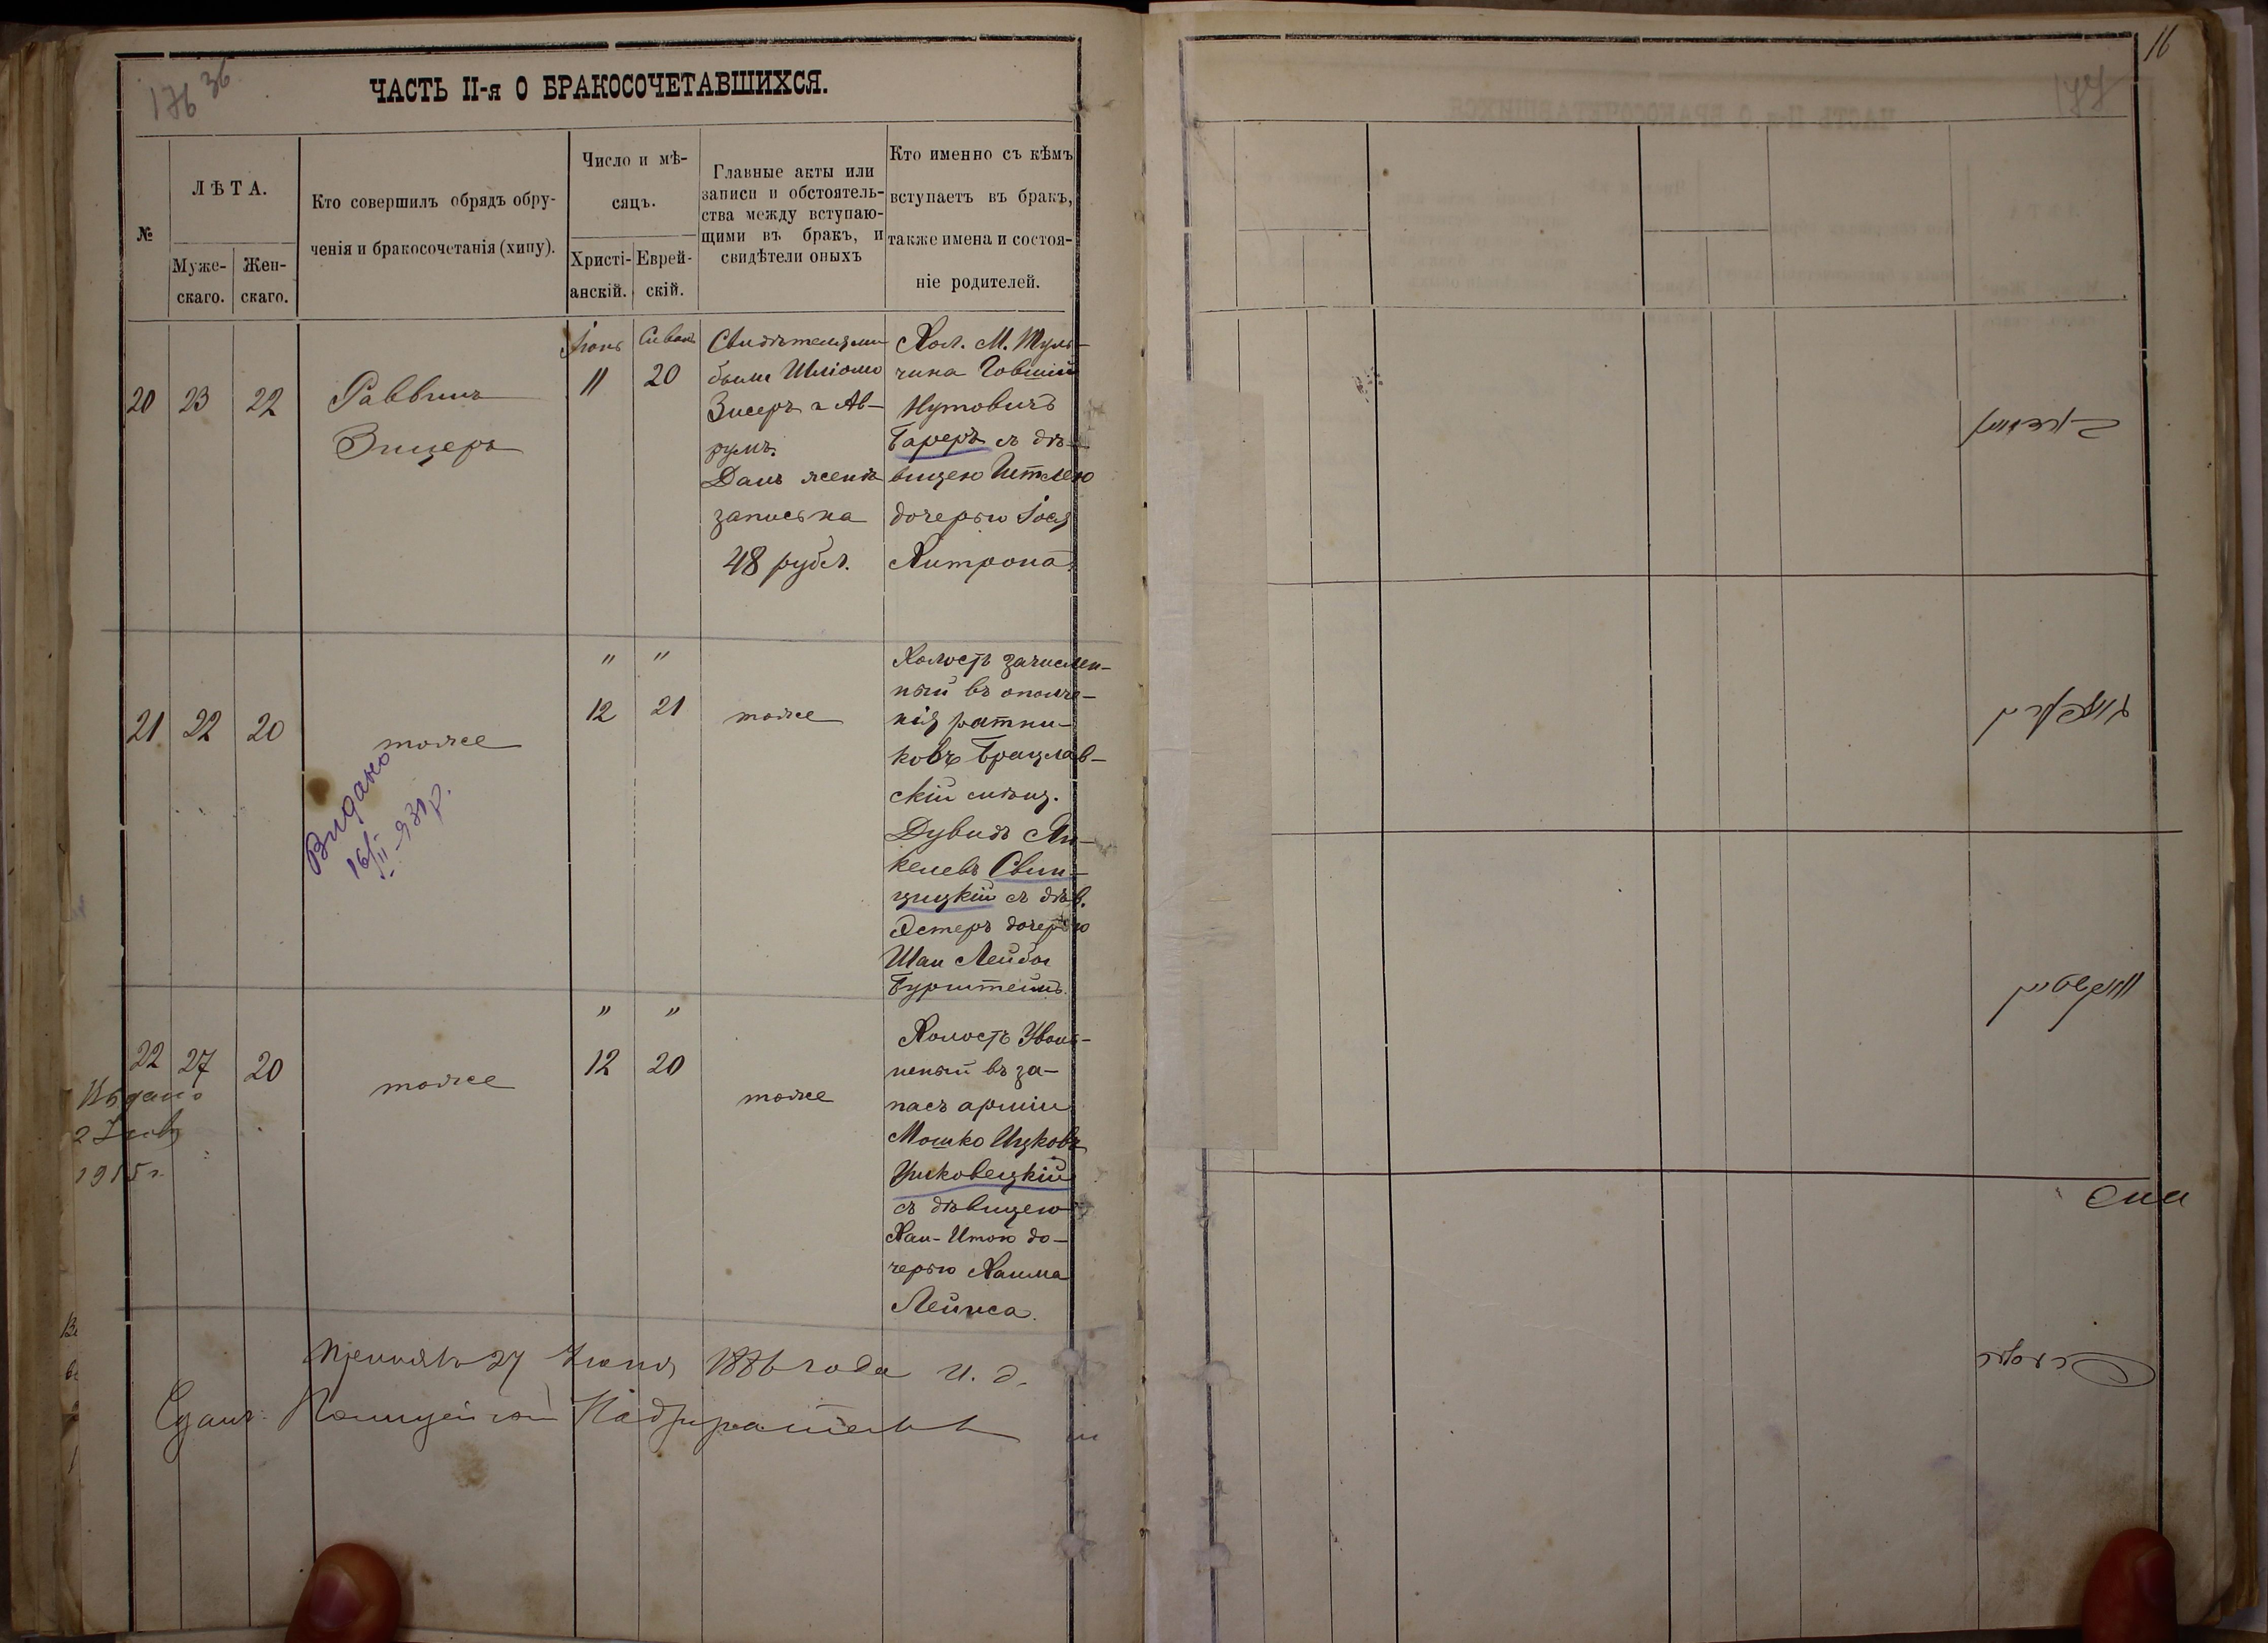 176 36
ЧАСТЬ II-я О БРАКОСОЧЕТАВШИХСЯ.
№
ЛѢТА.
Муже-
скаго.
Жен-
скаго.
Кто совершилъ обрядъ обру-
ченія и бракосочетанія (хипу).
Число и мѣ-
сяцъ.
Христі-
анскій.
Еврей-
скій.
Главные акты или
записи и обстоятель-
ства между вступаю-
щими въ бракъ, и
свидѣтели оныхъ
Кто именно съ кѣмъ
вступаетъ въ бракъ,
также имена и состоя-
ніе родителей.
20 23 22
Раввинъ
Зицеръ
Іюнь
11
Сиванъ
20
Свидѣтелями
были Шліомо
Зисеръ а Ав-
румъ.
Данъ женѣ
запись на
48 рубл.
Хол. М. Туль-
чина Говшій
Нутовичъ
Гареръ съ дѣ-
вицею Итлею
дочерью Іося
Хитрона.
21 22 20
тоже
Видано
16/II-931р.
" "
12 21
тоже
Холостъ зачислен-
ный въ ополче-
нія ратни-
ковъ Брацлав-
скій мѣщ.
Дувидъ Ян-
келевъ Свин-
цицкій съ дѣв.
Эстеръ дочерью
Шаи Лейбы
Бурштейнъ.
22 27 20
Выдано
2
1915 г.
тоже
" "
12 20
тоже
Холостъ Уволь-
неный въ за-
пасъ арміи
Мошко Ицковъ
Уриковецкій
съ дѣвицею
Хаи-Итою до-
черью Хаима
Лейпса.
27 Іюня 1886 года и. д.
Надзирателя
16
177